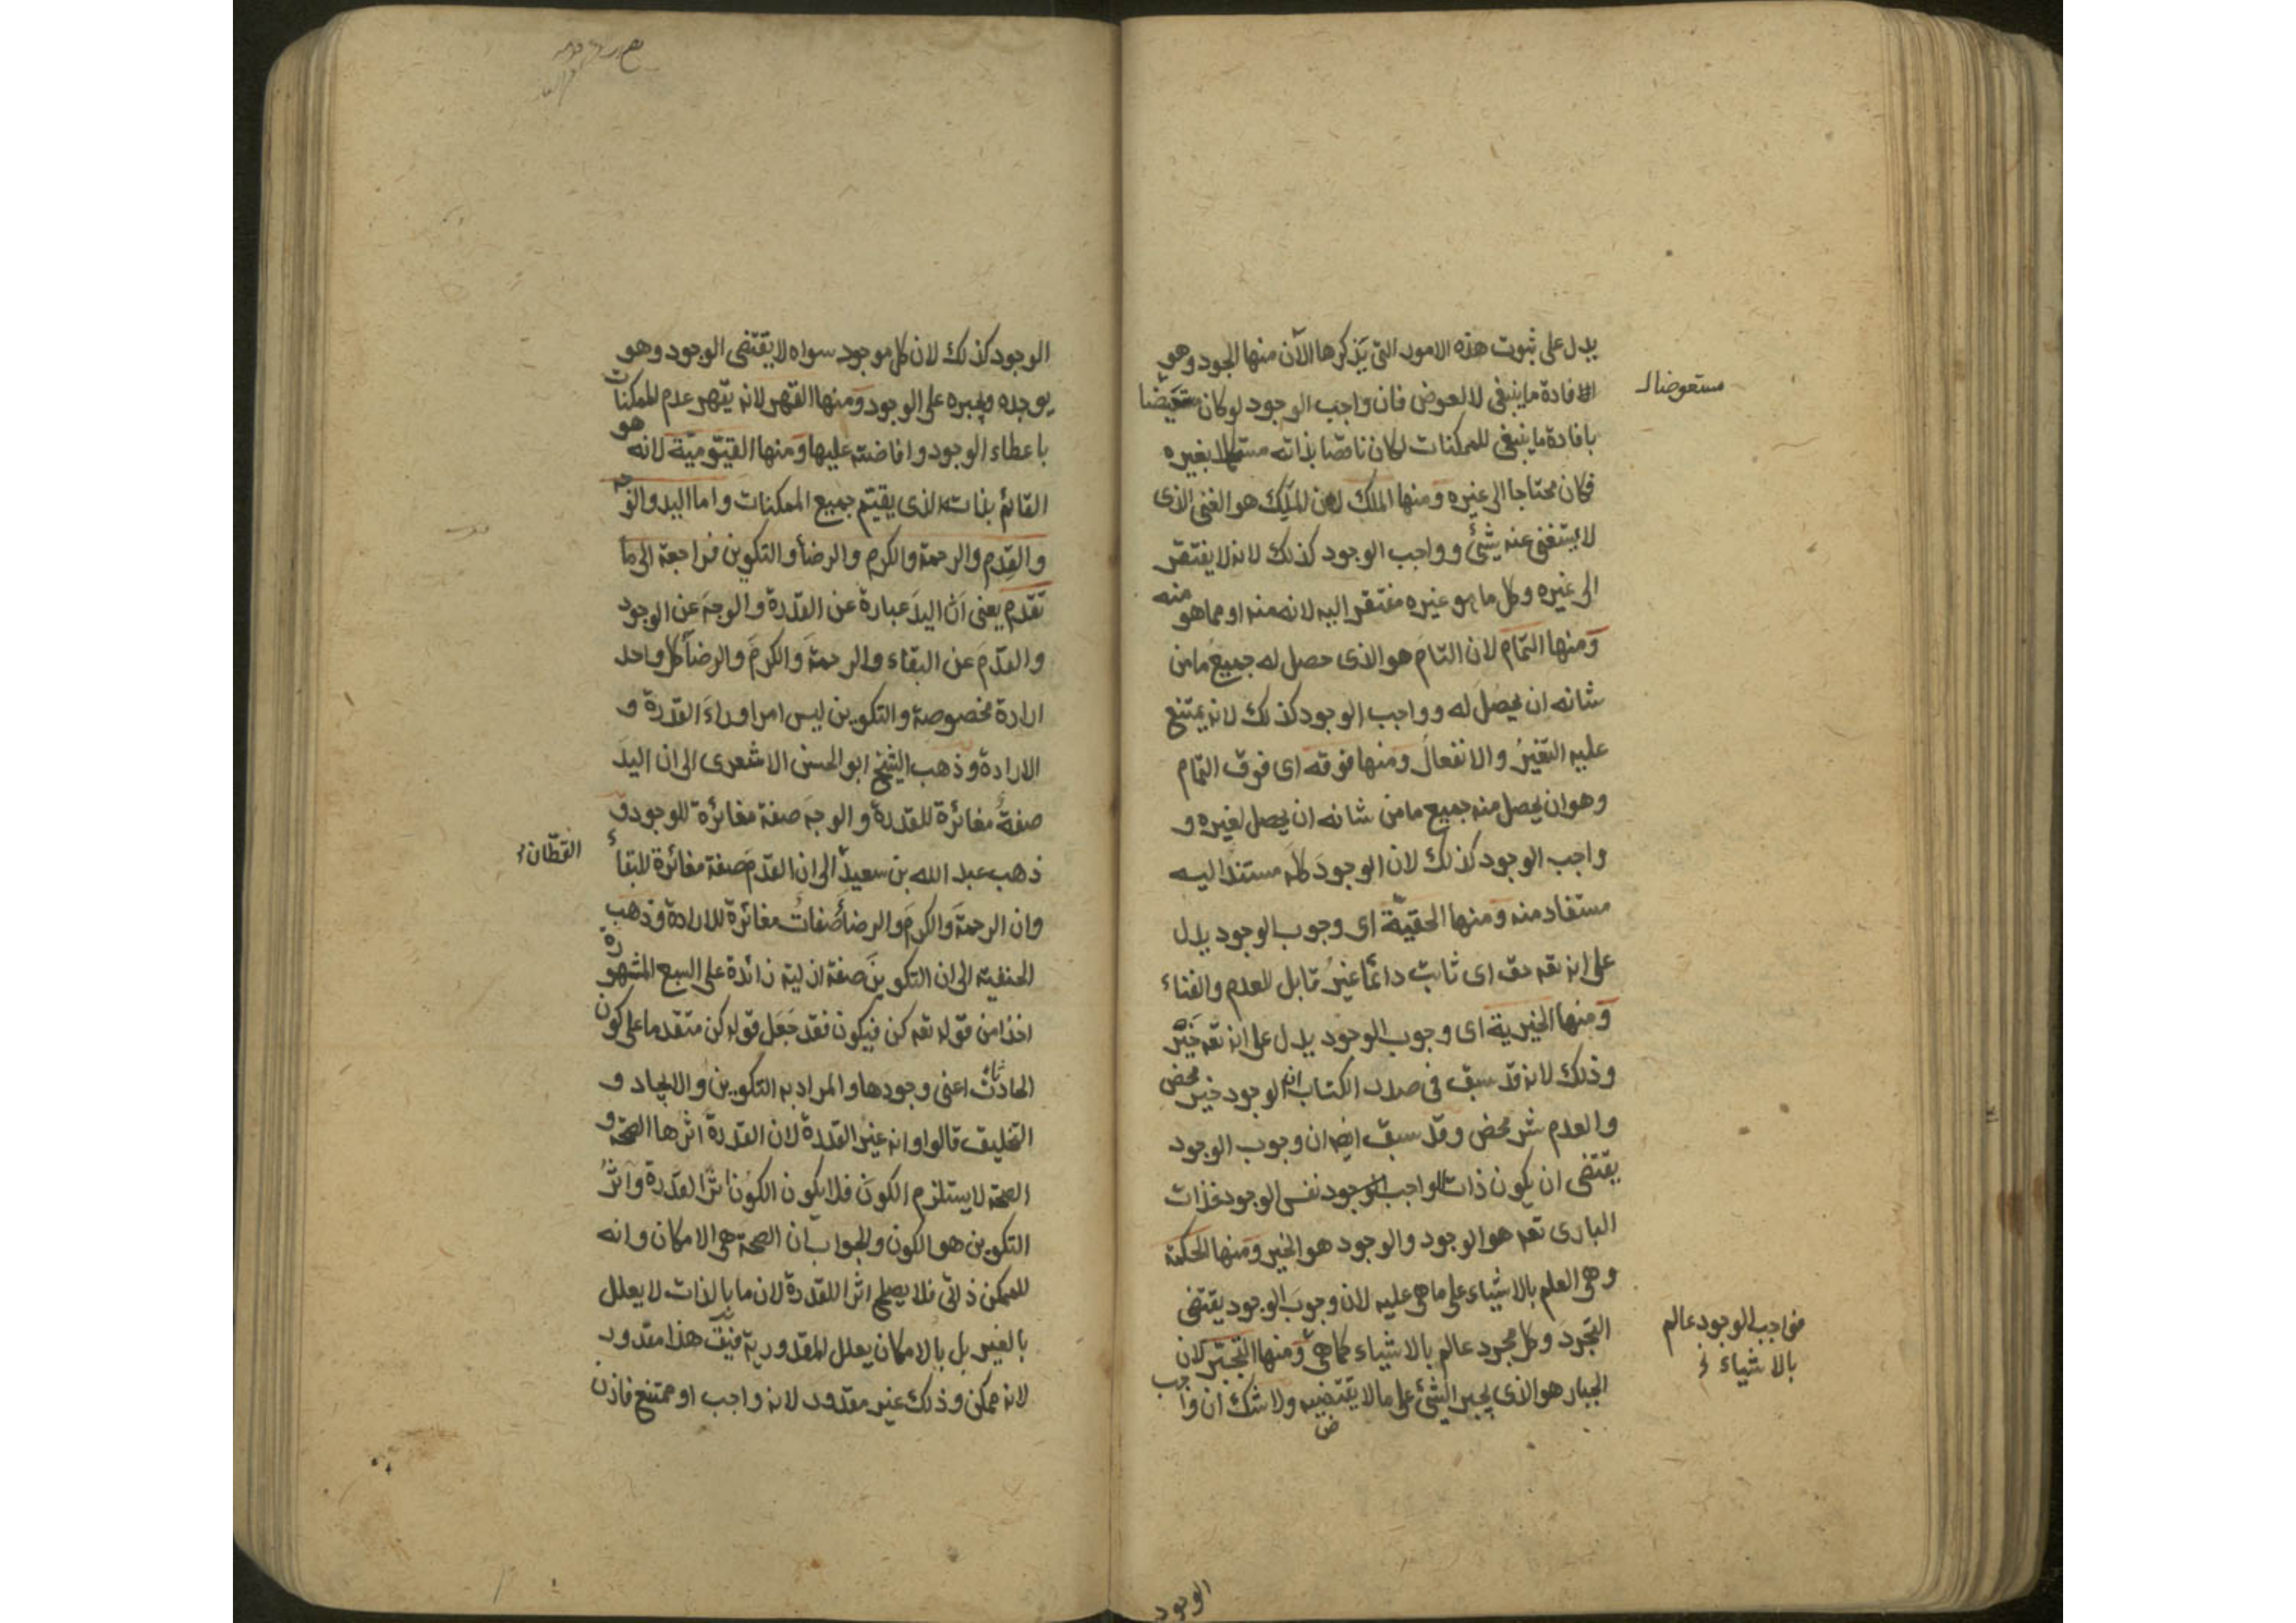 يدل على ثبوت هذه الامور التى يذكرها الآن منها الجود وهو
الافادة ما ينبغى لا لعوض فان واجب الوجود لو كان
مستعوضا
بافادة ما ينبغى للممكنات لكان ناقصا بذاته مستكملا بغيره
فكان محتاجا الى غيره ومنها الملك لان الملك هو الغنى الذى
لا يستغنى عنه شئ وواجب الوجود كذلك لانه لا يفتقر
الى غيره وكل ما هو غيره مفتقر اليه لانه منه او مما هو منه
ومنها التمام لان التام هو الذى حصل له جميع ما من
شانه ان يحصل له وواجب الوجود كذلك لانه يمتنع
عليه التغير والانفعال ومنها فوقه اى فوق التمام
وهو ان يحصل منه جميع ما من شانه ان يحصل لغيره و
واجب الوجود كذلك لان الوجود كله مستندا اليه
مستفاد منه ومنها الحقية اى وجوب الوجود يدل
على انه تعه حق اى ثابت دائما غير قابل للعدم والفناء
ومنها الخيرية اى وجوب الوجود يدل على انه تعه خير
وذلك لانه قد سبق فى صدر الكتاب ان الوجود خير محض
والعدم شر محض وقد سبق ايضه ان وجوب الوجود
يقتضى ان يكون ذات الواجب الوجود نفس الوجود فذات
البارى تعه هو الوجود والوجود هو الخير ومنها الحكمة
وهى العلم بالاشياء على ما هى عليه لان وجوب الوجود يقتضى
التجرد وكل مجرد عالم بالاشياء كما هى ومنها التجبر لان
فواجب الوجود عالم
بالاشياء
الجبار هو الذى يجبر الشئ على ما لا يقتضيه ولا شك ان واجب
الوجود
الوجود كذلك لان كل موجود سواه لا يقتضى الوجود وهو
يوجده ويجبره على الوجود ومنها القهر لانه يقهر عدم الممكنات
باعطاء الوجود وافاضته عليها ومنها القيومية لانه هو
القائم بذاته الذى يقيم جميع الممكنات واما اليد والوجه
والقدم والرحمة والكرم والرضا والتكوين فراجعة الى ما
تقدم يعنى ان اليد عبارة عن القدرة والوجه عن الوجود
والقدم عن البقاء والرحمة والكرم والرضا كل واحد
ارادة مخصوصة والتكوين ليس امرا وراء القدرة و
الارادة وذهب الشيخ ابو الحسن الاشعرى الى ان اليد
صفة مغائرة للقدرة والوجه صفة مغائرة للوجود و
ذهب عبد الله بن سعيد الى ان القدم صفة مغائرة للبقاء
القطان
وان الرحمة والكرم والرضا صفات مغائرة للارادة وذهب
الحنفية الى ان التكوين صفة ازلية زائدة على السبع المشهورة
اخذا من قوله تعه كن فيكون فقد جعل قوله كن متقدما على كون
الحادثات اعنى وجودها والمراد به التكوين والايجاد و
التخليق قالوا وانه غير القدرة لان القدرة اثرها الصحة و
الصحة لا يستلزم الكون فلا يكون الكون اثرا لقدرة واثر
التكوين هو الكون والجواب ان الصحة هى الامكان وانه
للممكن ذاتى فلا يصلح اثرا للقدرة لان ما بالذات لا يعلل
بالغير بل بالامكان يعلل المقدورية فيق هذا مقدور
لانه ممكن وذلك غير مقدور لانه واجب او ممتنع فاذن